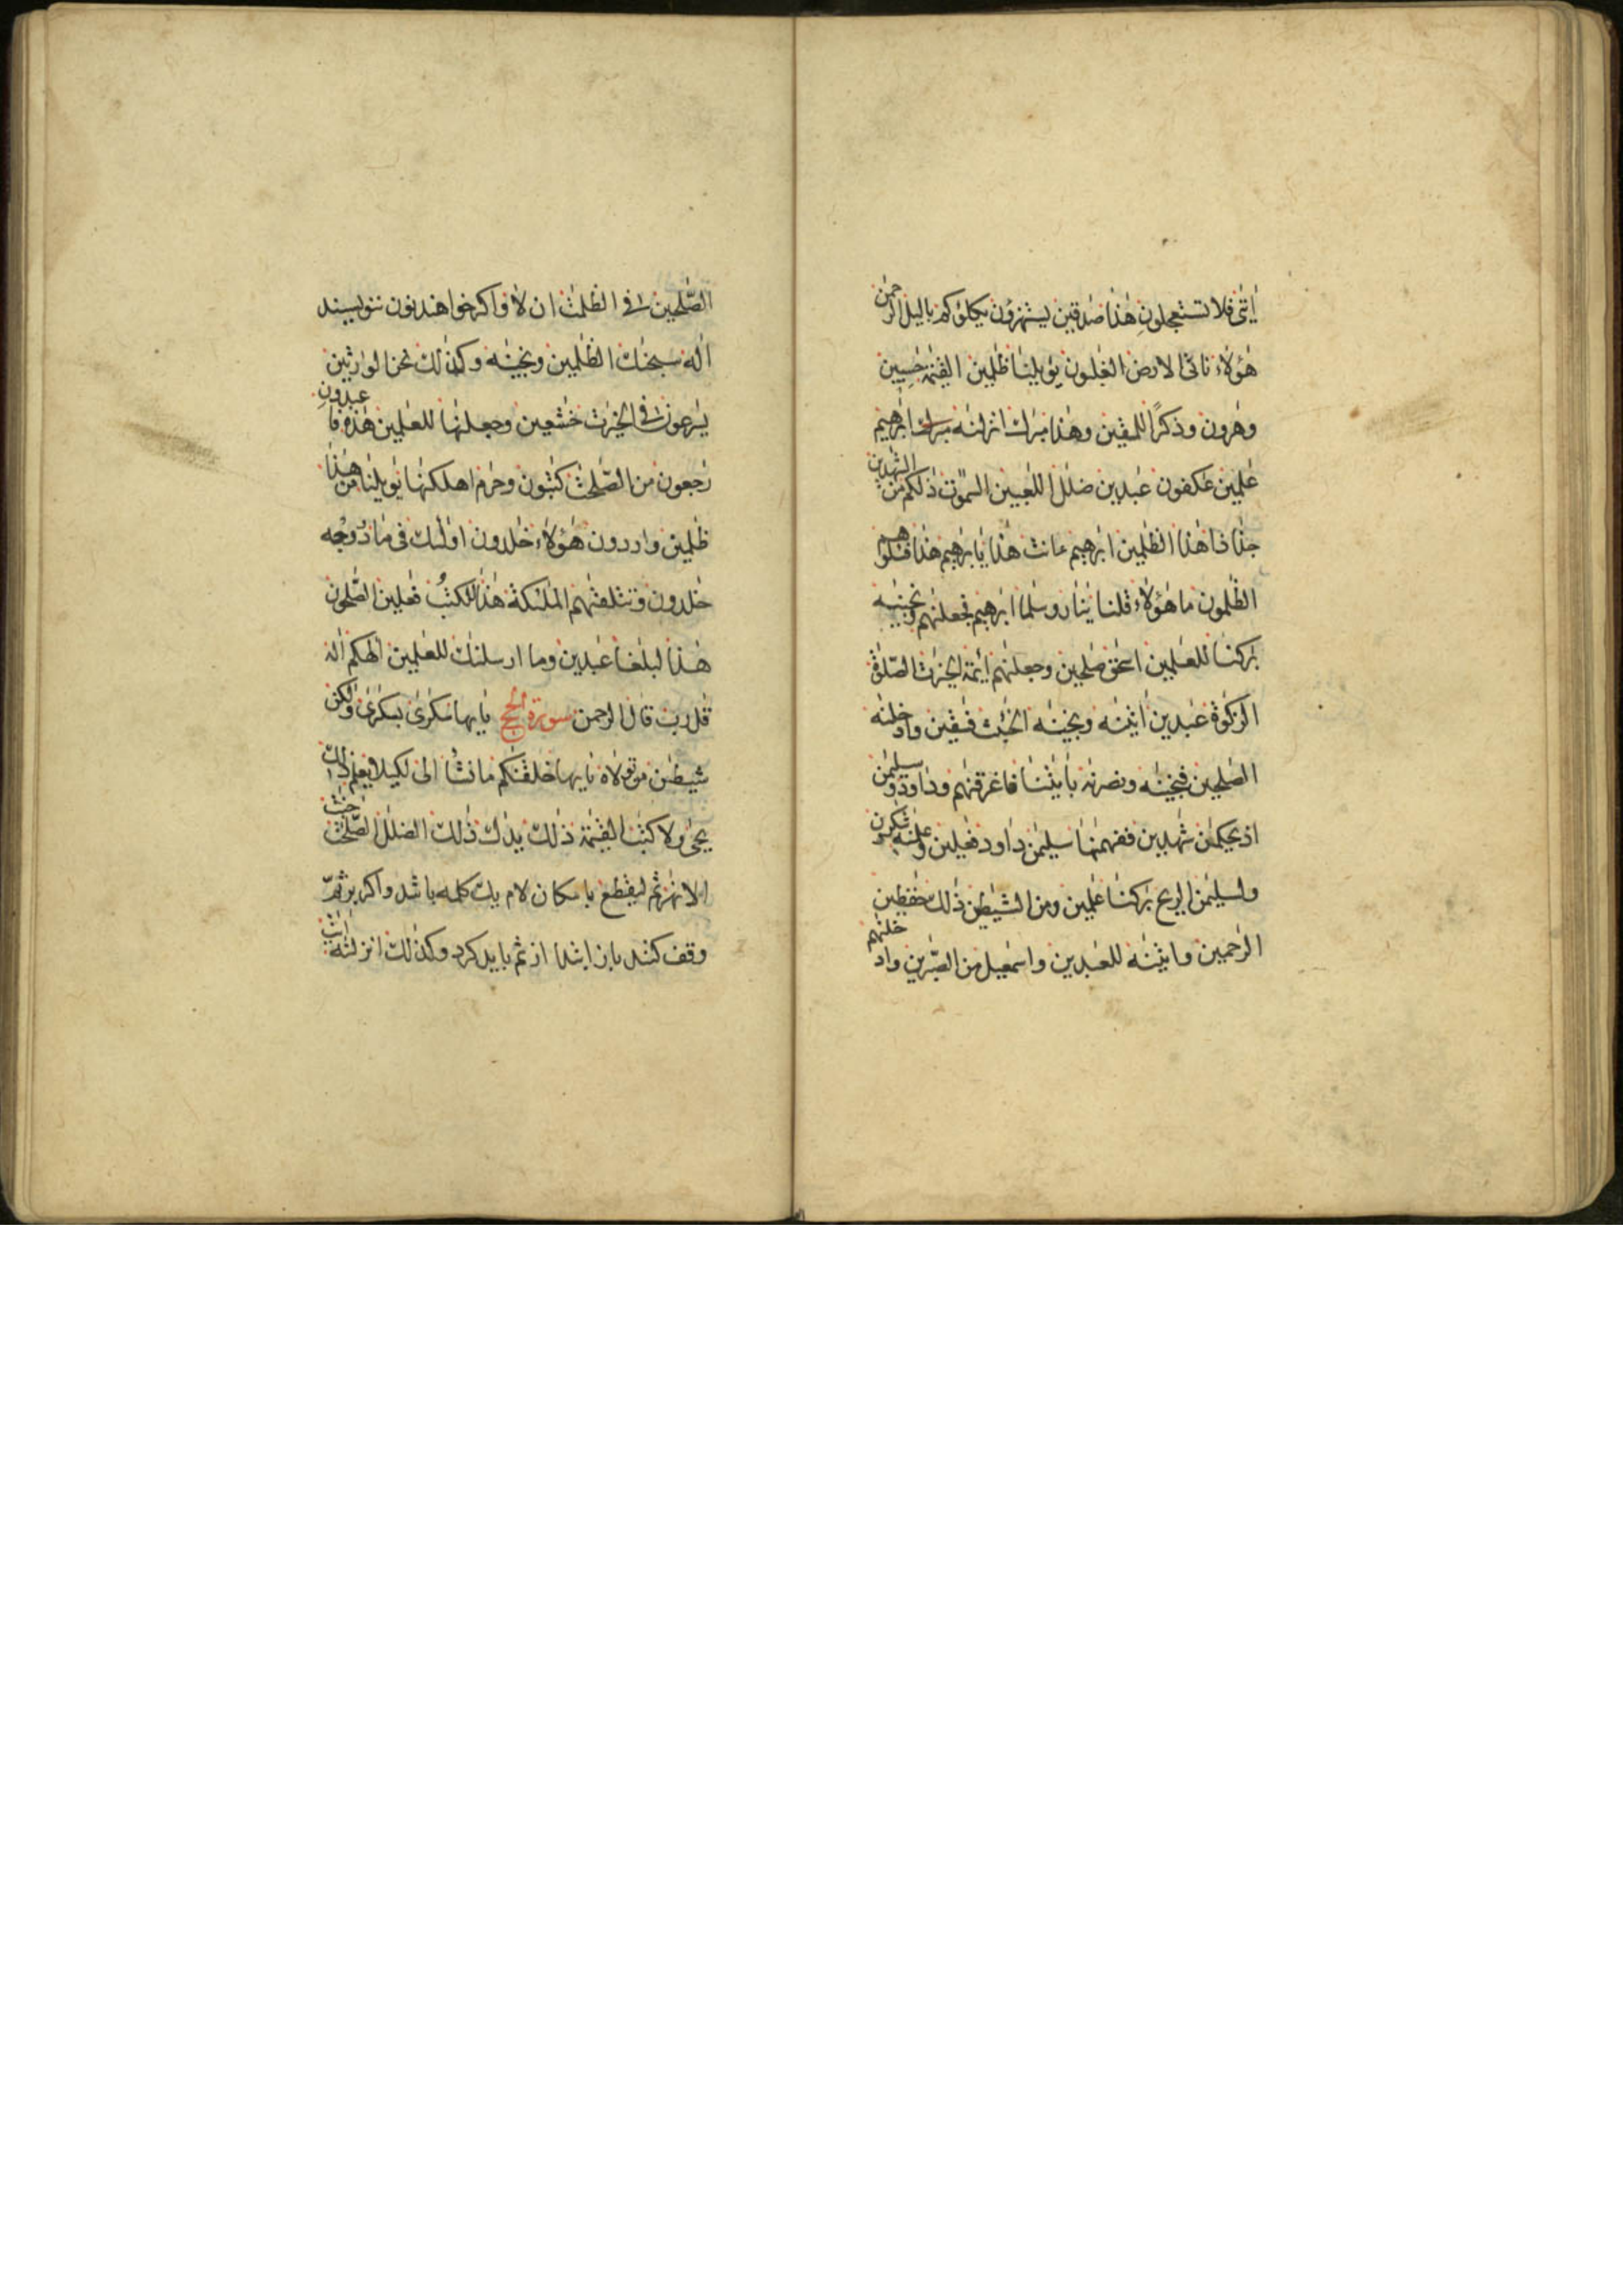 اٰیٰتی فلا تستعجلون هٰذا صٰدقین یستهزؤن یکلؤکم بالیل الرحمٰن
هٰؤلاء ناتی الارض الغٰلبون یٰویلنا ظٰلمین القیٰمة حٰسبین
وهٰرون وذکرًا للمتقین وهٰذا مبٰرك انزلنٰه ابرٰهیم
عٰلمین عٰکفون عٰبدین ضلٰل اللٰعبین السمٰوٰت ذٰلکم من الشٰهدین
جذاذا هٰذا الظٰلمین ابرٰهیم ءانت هٰذا یابرٰهیم هٰذا فسلوهم
الظٰلمون ما هٰؤلاء قلنا یٰنار وسلما ابرٰهیم فجعلنٰهم ونجینٰه
بٰرکنا للعٰلمین اسحٰق صٰلحین وجعلنٰهم ائمة الخیرٰت الصلٰوة
الزکٰوة عٰبدین اٰتینٰه ونجینٰه الخبٰئث فٰسقین وادخلنٰه
الصٰلحین فنجینٰه ونصرنٰه باٰیٰتنا فاغرقنٰهم وداود وسلیمٰن
اذ یحکمٰن شٰهدین ففهمنٰها سلیمٰن داود فٰعلین وعلمنٰه شٰکرون
ولسلیمٰن الریح بٰرکنا عٰلمین ومن الشیٰطین ذٰلك حٰفظین
الرٰحمین واٰتینٰه للعٰبدین واسمٰعیل من الصٰبرین وادخلنٰهم
الصّٰلحین فی الظلمٰت ان لا واکر خواهند نون ننویسند
اله سبحٰنك الظٰلمین ونجینٰه وکذٰلك نحن الوٰرثین
یسٰرعون فی الخیرٰت خٰشعین وجعلنٰها للعٰلمین هٰذه فاعبدون
رٰجعون من الصّٰلحٰت کٰتبون وحرٰم اهلکنٰها یٰویلنا من هٰذا
ظٰلمین واردون هٰؤلاء خٰلدون اولٰئك فی ما
خٰلدون وتتلقٰهم الملٰئکة هٰذا للکتب فٰعلین الصّٰلحون
هٰذا لبلٰغا عٰبدین وما ارسلنٰك للعٰلمین الٰهکم اله
قٰل رب قال الرحمٰن سورة الحج یٰایها سکٰرٰی بسکٰرٰی ولٰکن
شیطٰن من تولاه یٰایها خلقنٰکم ما نشاء الی لکیلا یعلم ذٰلك
یحی ولا کتٰب القیٰمة ذٰلك یدٰك ذٰلك الضلٰل الصّٰلحٰت جنّٰت
الانهٰر ثم لیقطع باسکان لام یك کلمه باشد واکر بر ثمّ
وقف کنند باز ابتدا از ثم باید کرد وکذٰلك انزلنٰه اٰیٰت